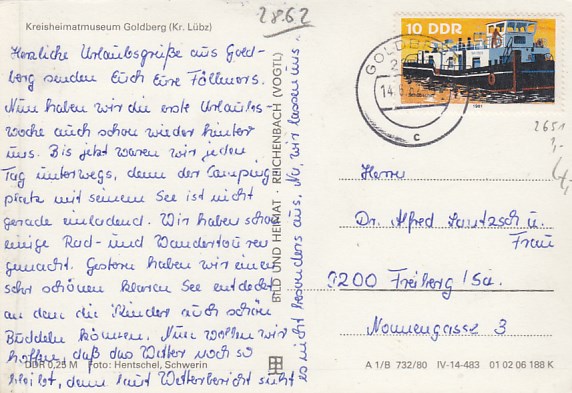 Kreisheimatmuseum Goldberg (Kr. Lübz)
2862
Herzliche Urlaubsgrüße aus Gold-
berg senden Euch Eure Föllmers.
Nun haben wir die erste Urlaubs-
woche auch schon wieder hinter
uns. Bis jetzt waren wir jeden
Tag unterwegs, denn der Camping-
platz mit seinem See ist nicht
gerade einladend. Wir haben schon
einige Rad- und Wandertouren
gemacht. Gestern haben wir einen
sehr schönen klaren See entdeckt
an dem die Kinder auch schön
Buddeln können. Nun wollen wir
hoffen, daß das Wetter noch so
bleibt, denn laut Wetterbericht sieht
es nicht besonders aus. Na, wir lassen uns
DDR 0,25 M Foto: Hentschel, Schwerin
BILD UND HEIMAT · REICHENBACH (VOGTL)
10 DDR
1981
GOLDBERG
c
2651
Herrn
Dr. Alfred u.
Frau
9200 Freiberg / Sa.
Nonnengasse 3
A 1/B 732/80 IV-14-483 01 02 06 188 K